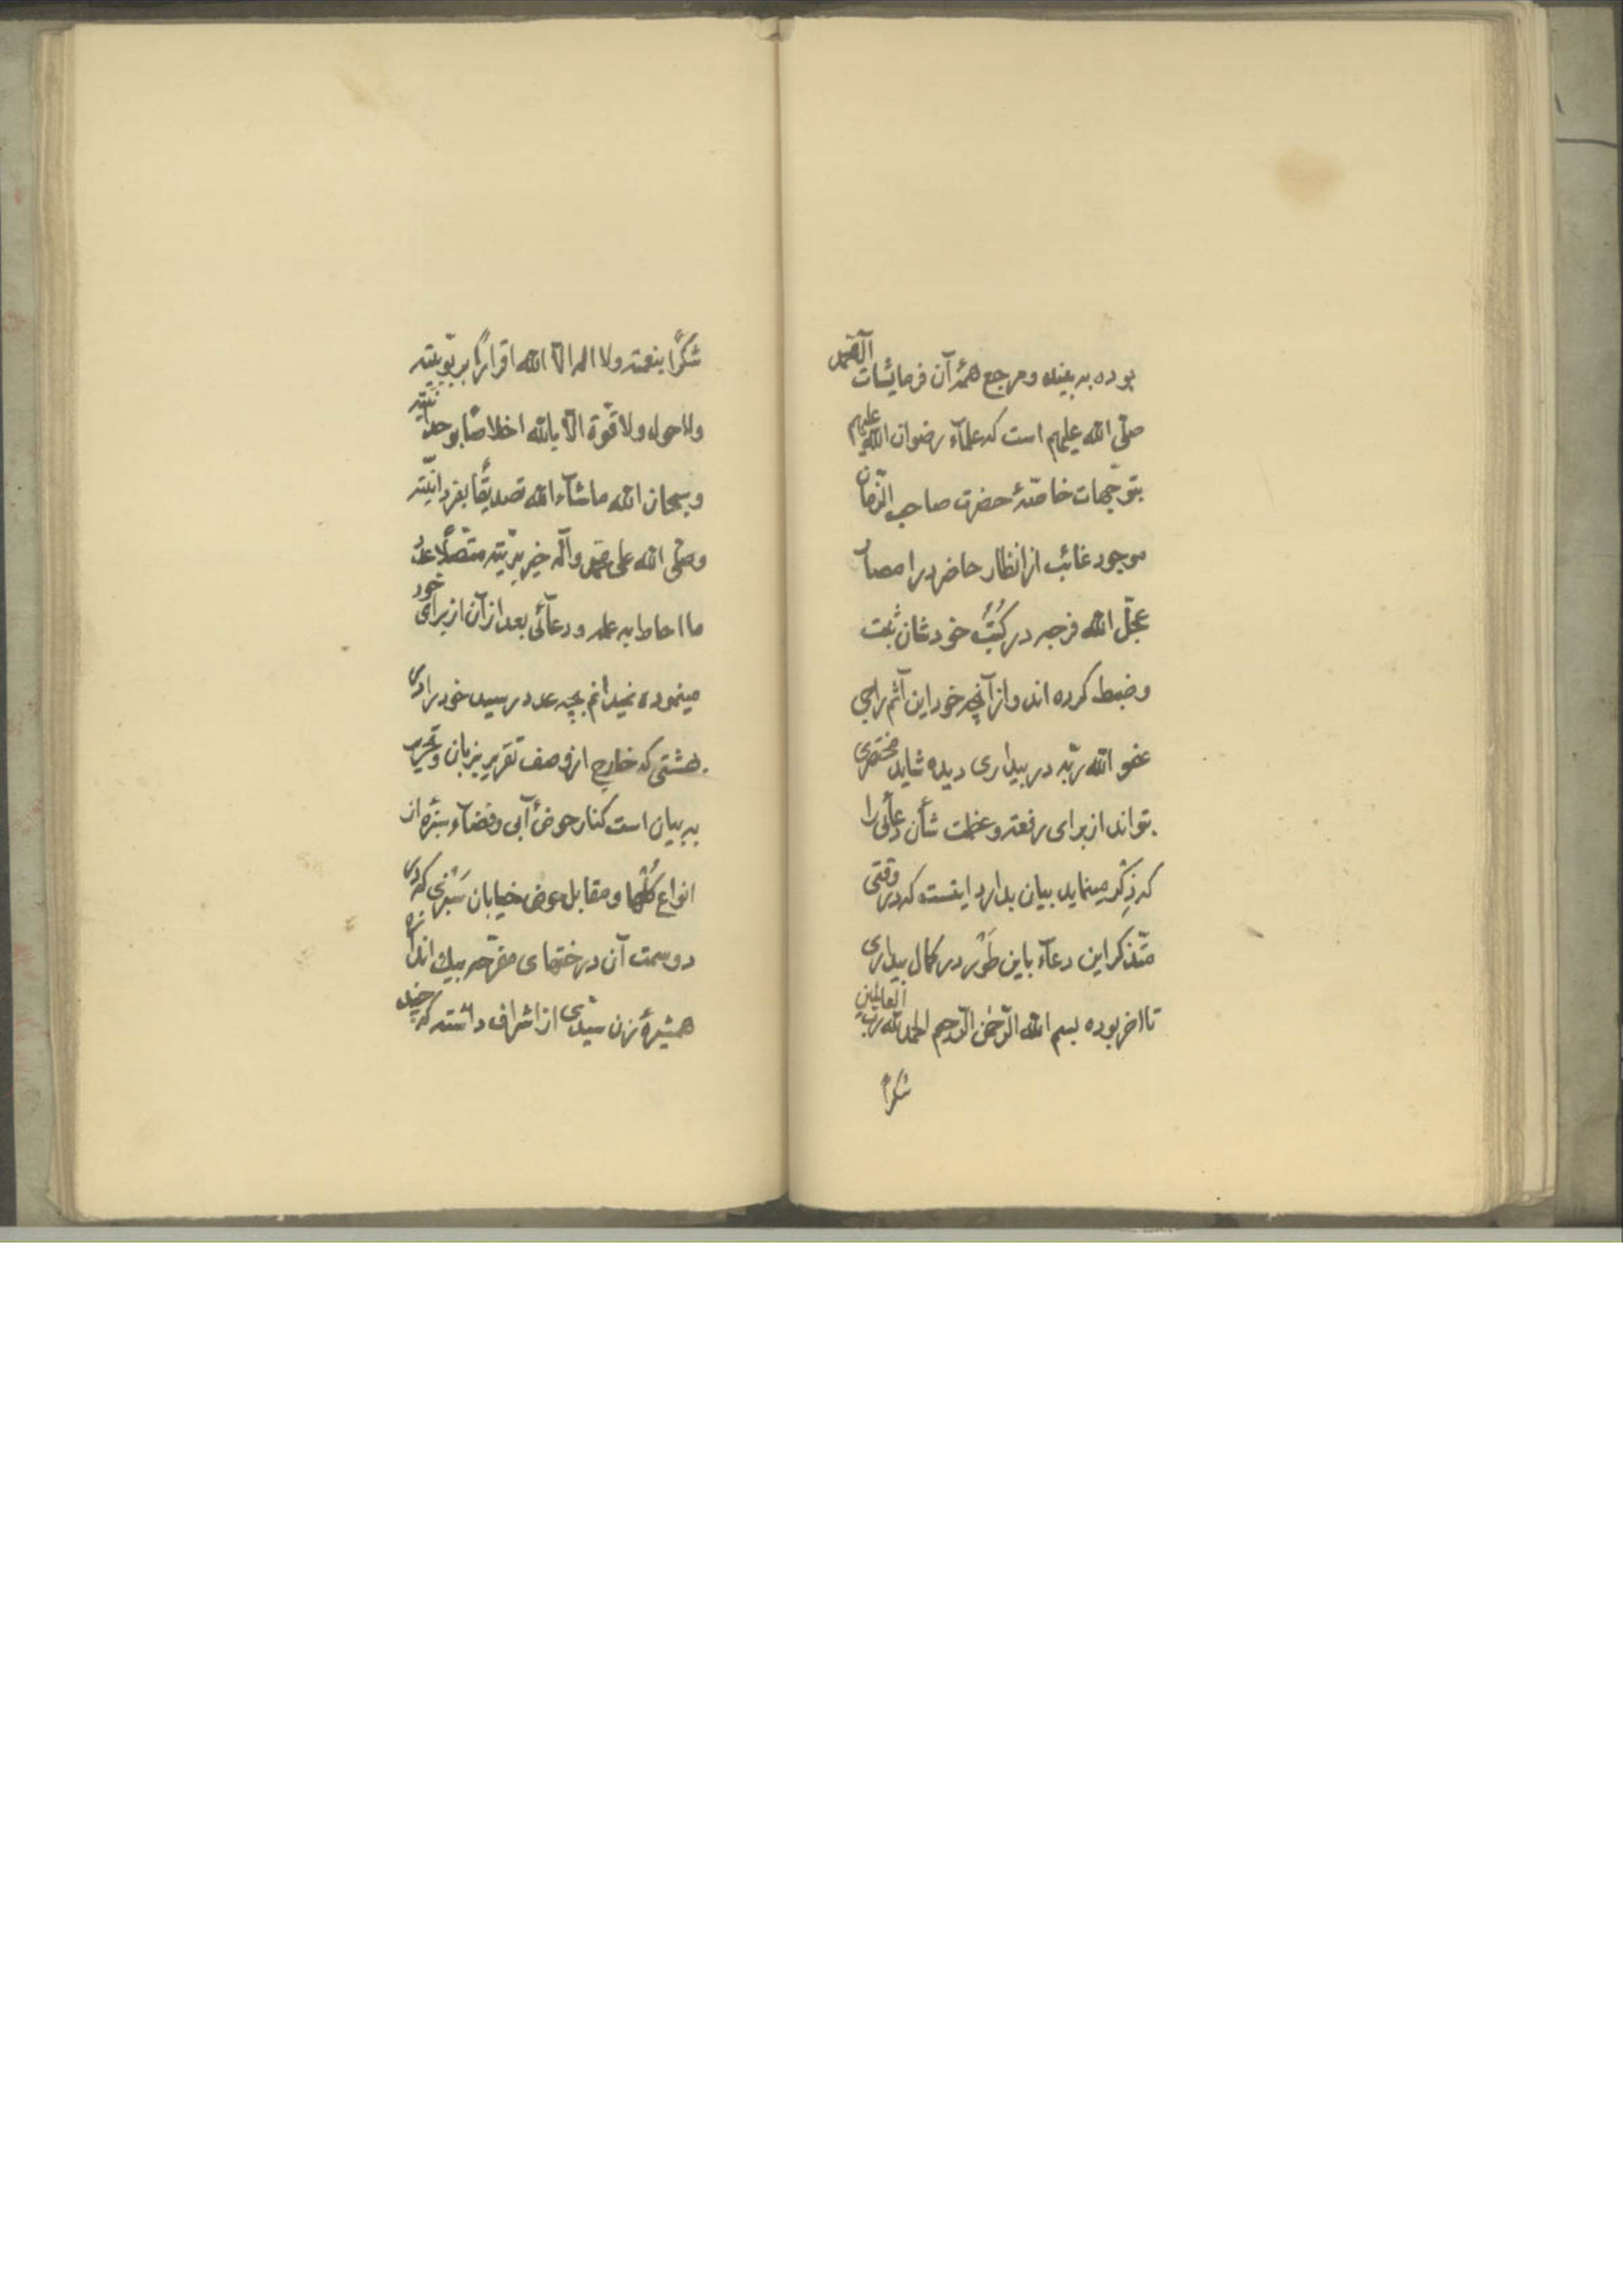 بوده به بیند و مرجع همهٔ آن فرمایشات آل محمّد
صلّی الله علیهم است که علمآء رضوان الله علیهم
بتوجّهات خاصّهٔ حضرت صاحب الزّمان
موجود غائب از انظار حاضر در امصار
عجّل الله فرجه در کُتُب خودشان ثبت
وضبط کرده اند و از آنچه خود این آثم راجی
عفو الله ربّه در بیداری دیده شاید مختصری
بتواند از برای رفعت و عظمت شأن دعآئی را
که ذِکر مینماید بیان بدارد اینست که در وقتی
متذکّر این دعآء باین طَوْر در کمال بیداری
تا اخر بوده بسم الله الرّحمن الرّحیم الحمد لله ربّ العالمین
شکراً
شکرًا بنعمته ولا اله الّا الله اقرارًا بربوبیّته
ولا حول ولا قوّة الّا بالله اخلاصًا بوحدانیّته
وسبحان الله ماشآء الله تصدیقًا بفردانیّته
وصلّی الله علی محمّد وآله خیر بریّته متّصلًا عدد
ما احاط به علمه ودعآئی بعد از آن از برای خود
مینموده نمیدانم بچه عدد رسید خود را در
بهشتی که خارج از وصف تقریر بزبان و تحریر
به بیان است کنار حوض آبی و فضآء سبزه از
انواع گُلها و مقابل حوض خیابان سَبْزی که در
دو سمت آن درختهای مفرّحه بیک اندازه
همشیرهٔ زن سیّدی از اشراف داشته که چند